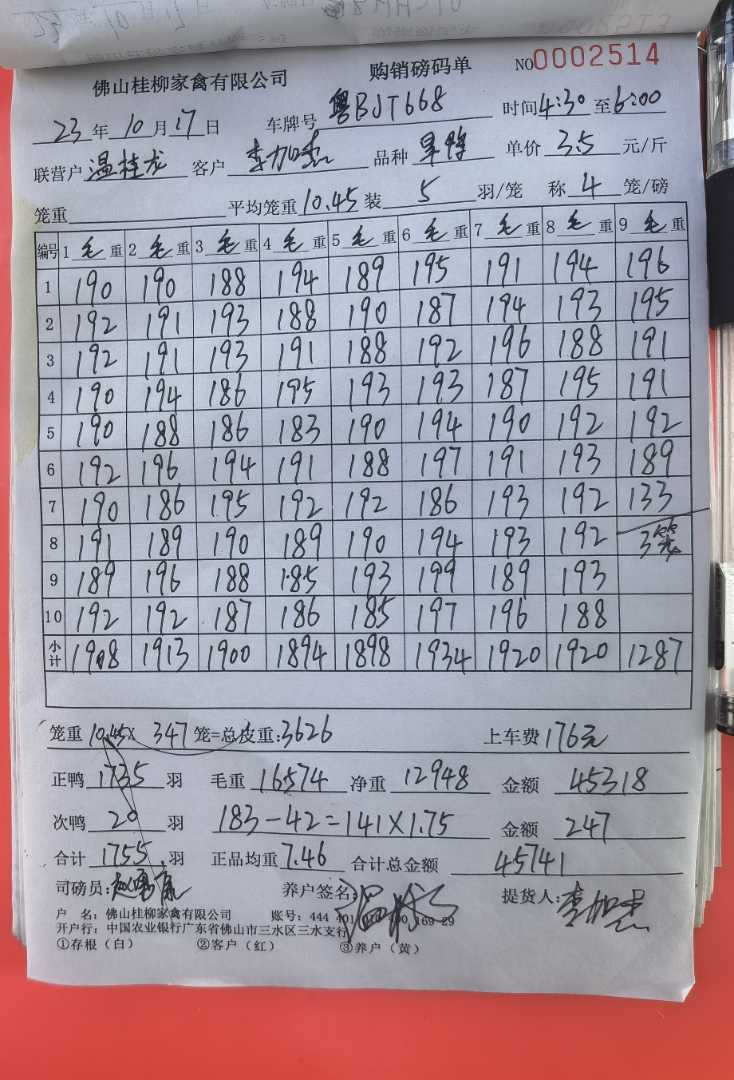 佛山桂柳家禽有限公司 购销磅码单 NO0002514
23年10月17日 车牌号 粤BJT668 时间4:30至6:00
联营户 温桂龙 客户 李加杰 品种 单价 3.5 元/斤
笼重 平均笼重 10.45 装 5 羽/笼 称 4 笼/磅
编号 1 毛重 2 毛重 3 毛重 4 毛重 5 毛重 6 毛重 7 毛重 8 毛重 9 毛重
1 190 190 188 194 189 195 191 194 196
2 192 191 193 188 190 187 194 193 195
3 192 191 193 191 188 192 196 188 191
4 190 194 186 195 193 193 187 195 191
5 190 188 186 183 190 194 190 192 192
6 192 196 194 191 188 197 191 193 189
7 190 186 195 192 192 186 193 192 133
8 191 189 190 189 190 194 193 192 3笼
9 189 196 188 185 193 199 189 193
10 192 192 187 186 185 197 196 188
小计 1908 1913 1900 1894 1898 1934 1920 1920 1287
笼重 10.45× 347 笼=总皮重:3626 上车费 176元
正鸭 1735 羽 毛重 16574 净重 12948 金额 45318
次鸭 20 羽 183-42=141×1.75 金额 247
合计 1755 羽 正品均重 7.46 合计总金额 45741
司磅员: 养户签名: 提货人: 李加杰
户 名: 佛山桂柳家禽有限公司 账号: 444 169 29
开户行: 中国农业银行广东省佛山市三水区三水支行
①存根(白) ②客户(红) ③养户(黄)